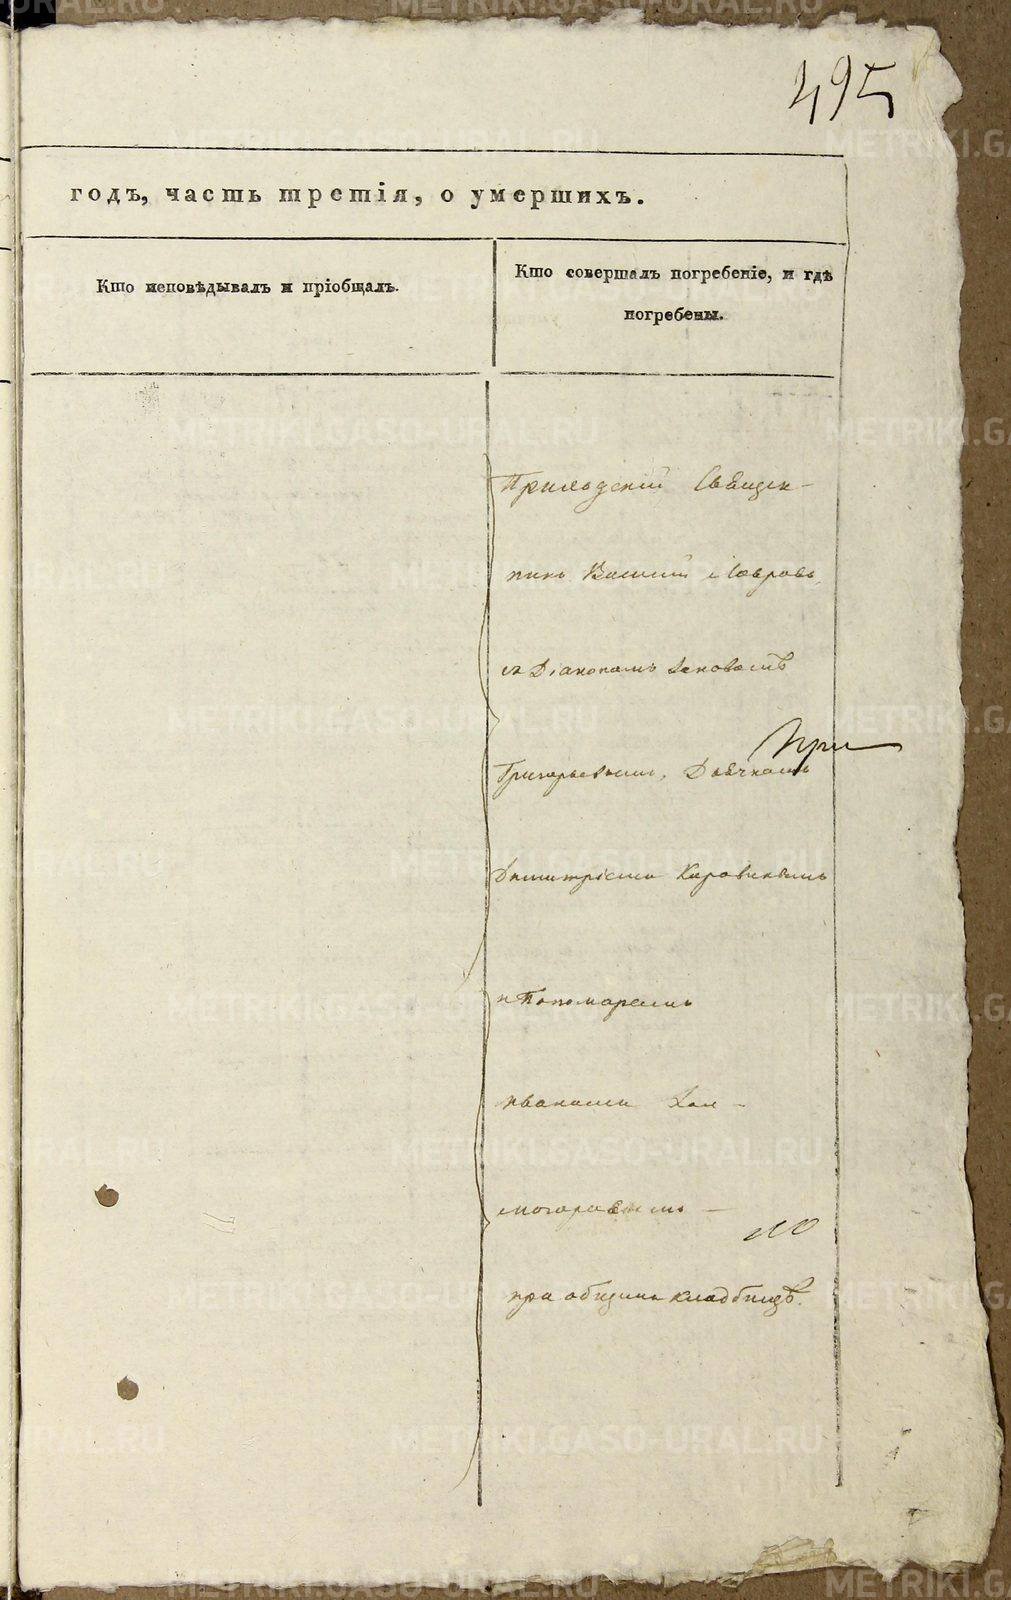 495
годъ, часть третія, о умершихъ.
Кто исповѣдывалъ и пріобщалъ.
Кто совершалъ погребеніе, и гдѣ
погребены.
Приходскій Священ-
никъ Василій Лавровъ
съ Діакономъ
При
Григорьевымъ, Дьячкомъ
Димитріемъ
и Пономаремъ
Иваномъ Хол-
могоровымъ
на общемъ кладбищѣ.
METRIKI.GASO-URAL.RU